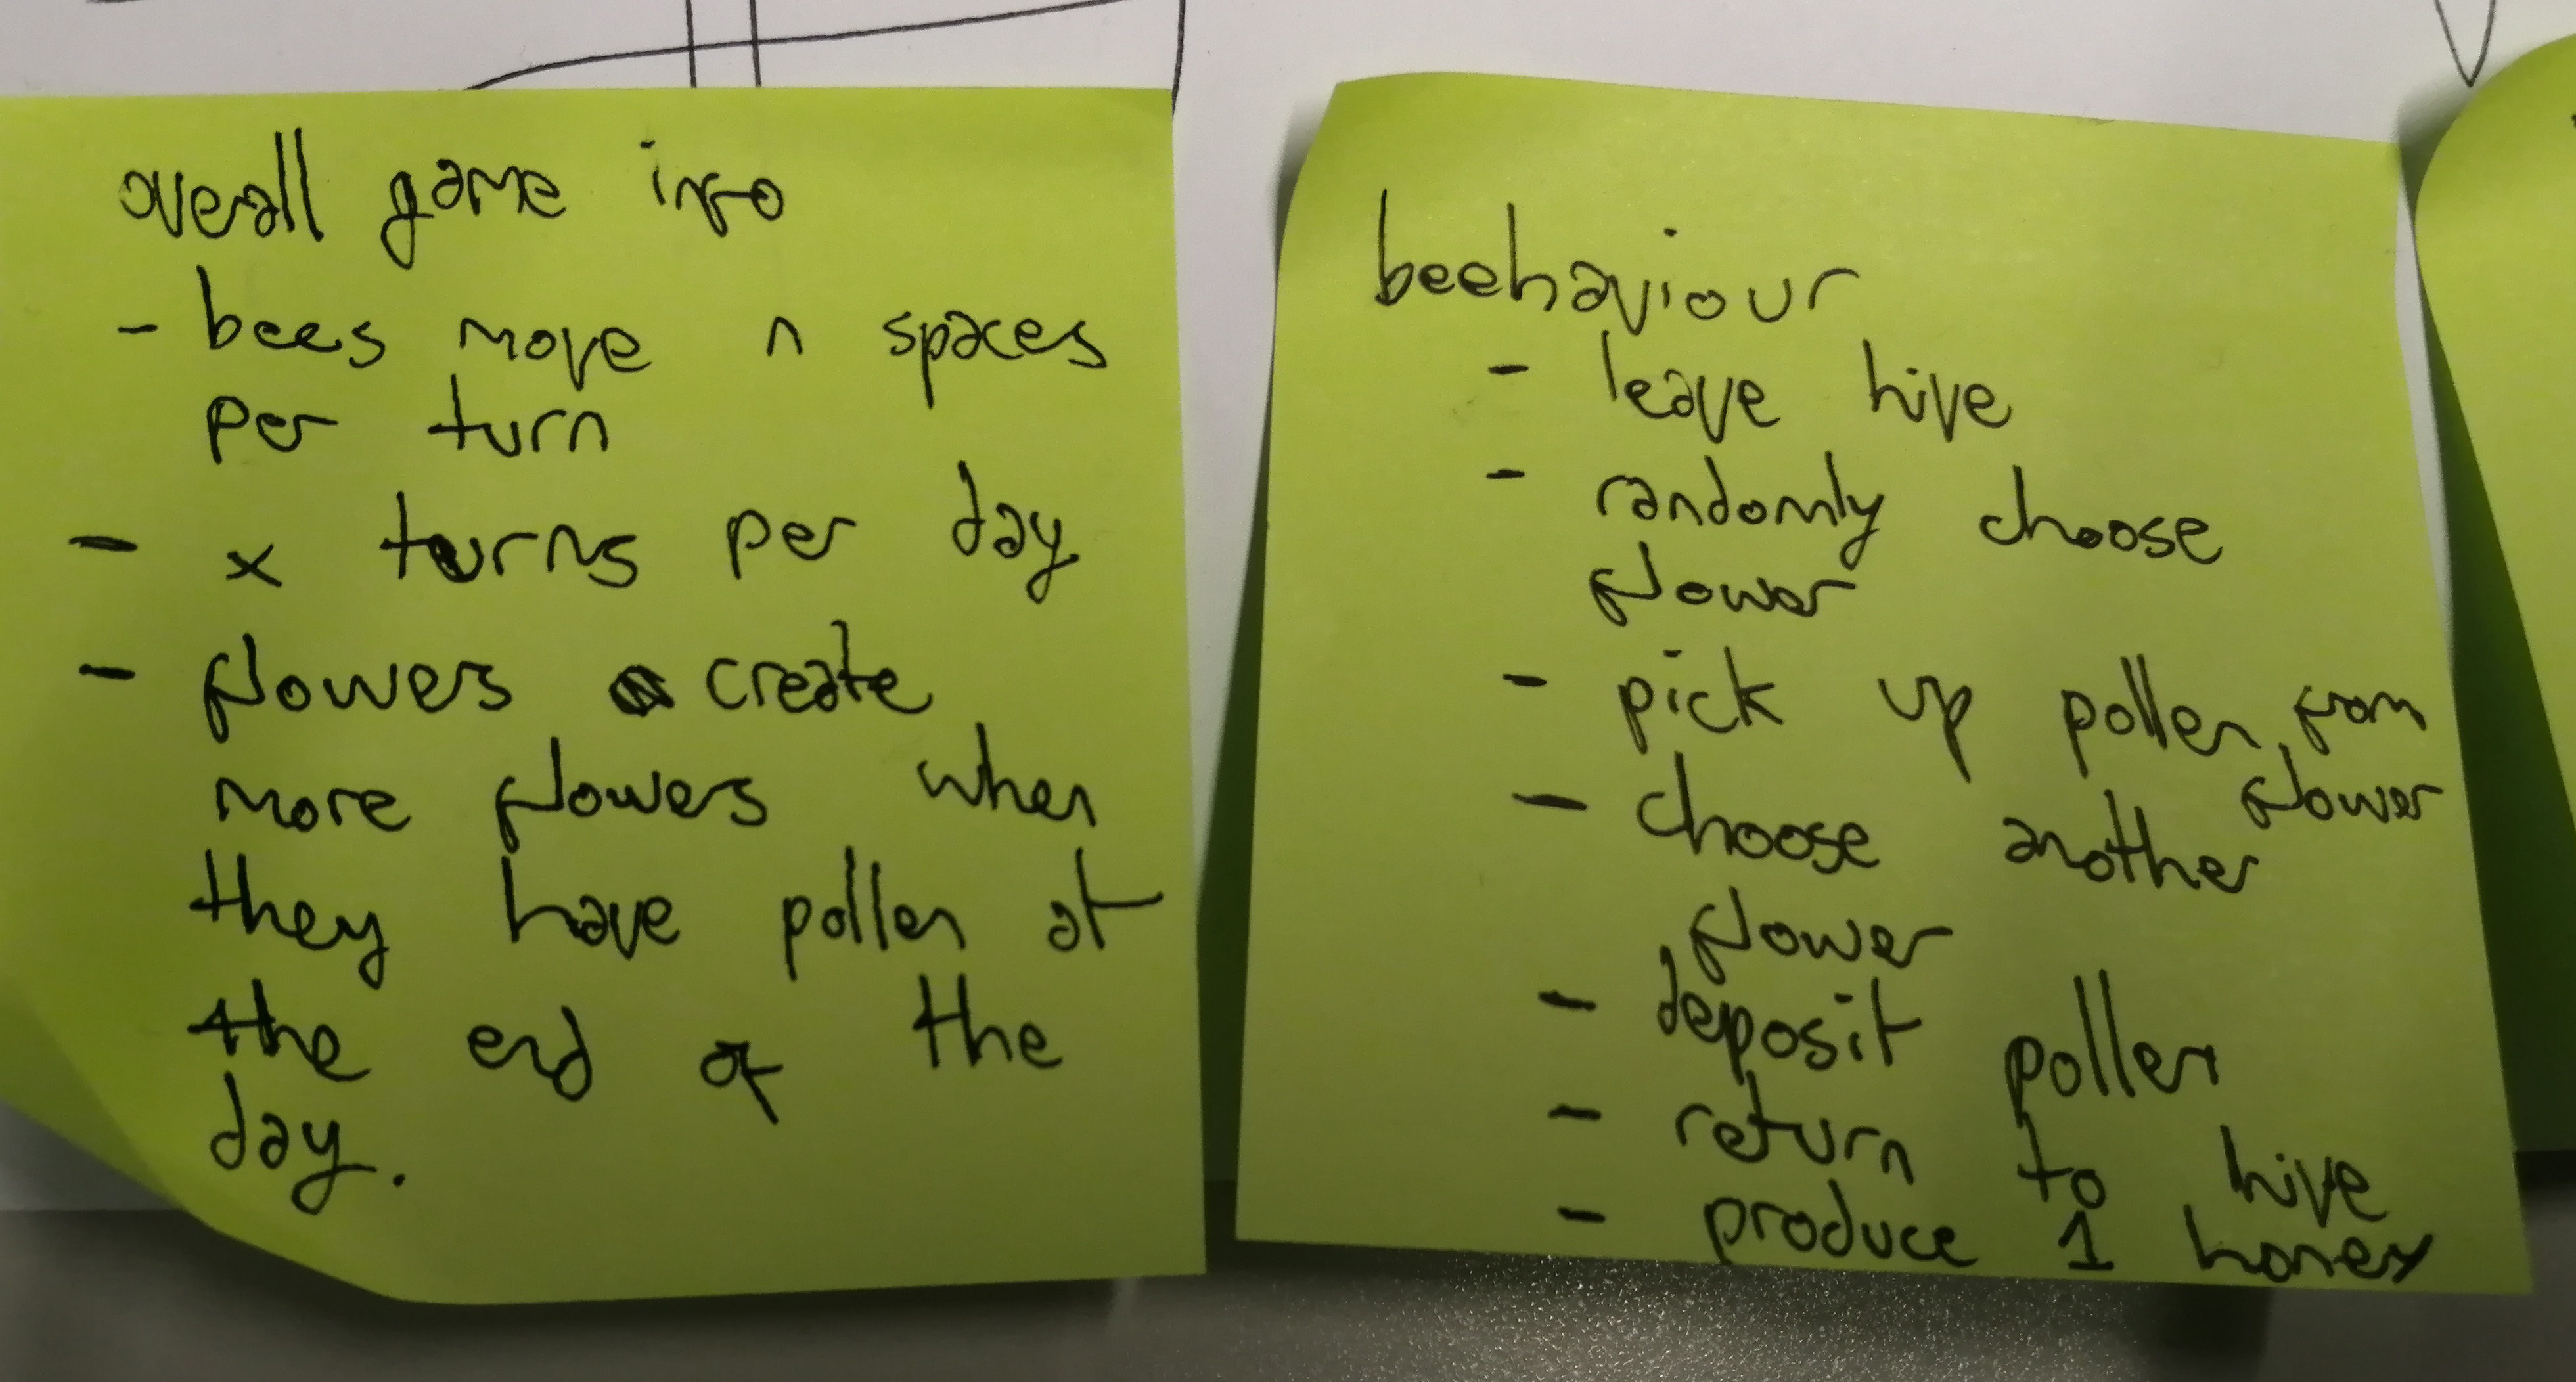 overall game info
- bees move n spaces
per turn
- x turns per day
- flowers create
more flowers when
they have pollen at
the end of the
day.
beehaviour
- leave hive
- randomly choose
flower
- pick up pollen from
flower
- choose another
flower
- deposit pollen
- return to hive
- produce 1 honey